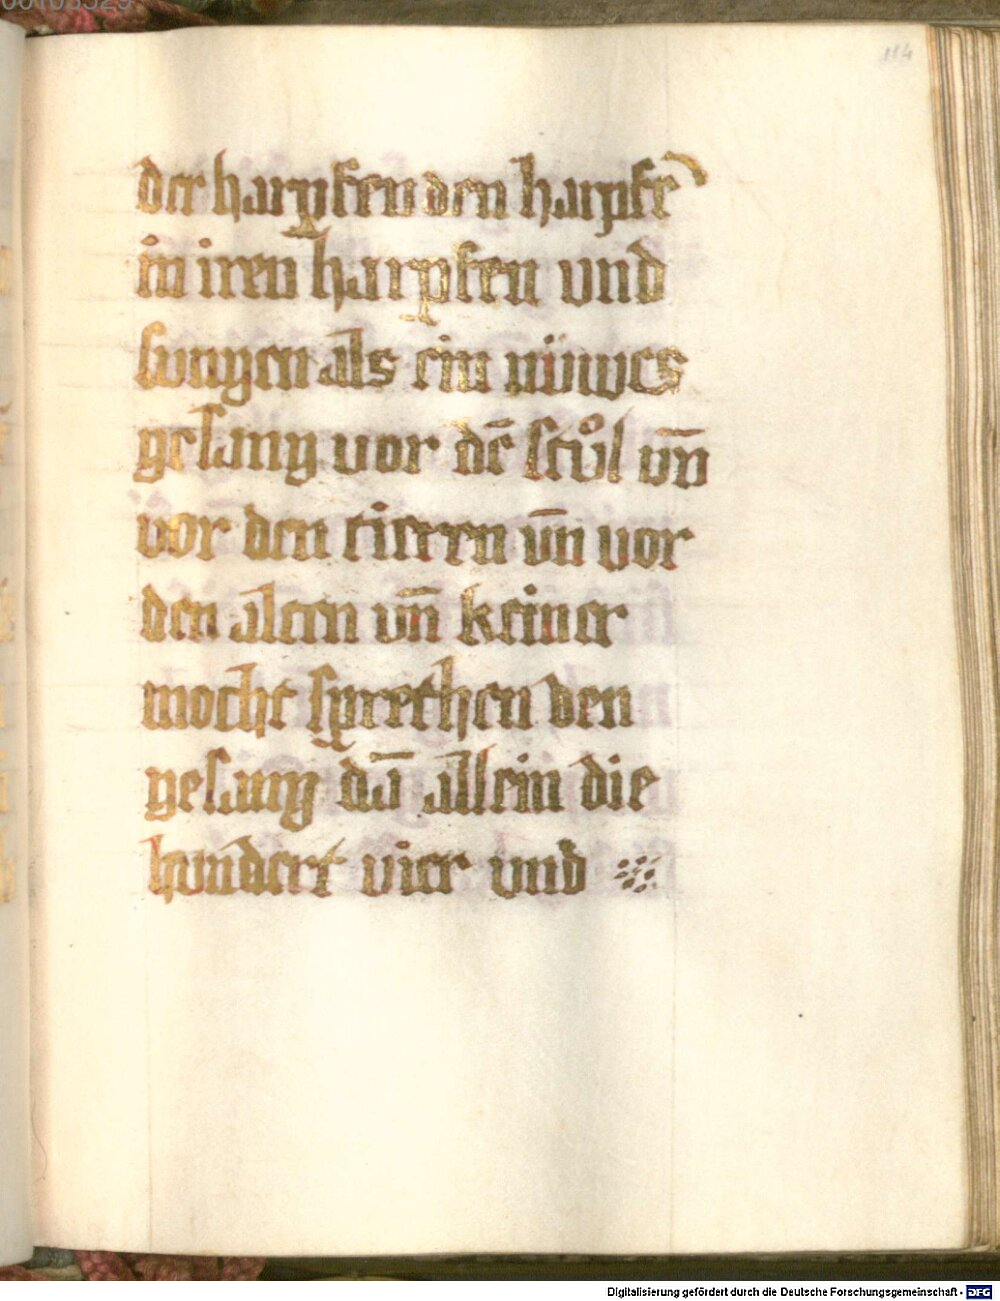 114
der harpfenden harpfē
in iren harpfen und
sungen als ein nüwes
gesang vor dē stůl vn̄
vor den tieren vn̄ vor
den alten vn̄ keiner
mocht sprechen den
gesang dā allein die
hundert vier und
Digitalisierung gefördert durch die Deutsche Forschungsgemeinschaft - DFG